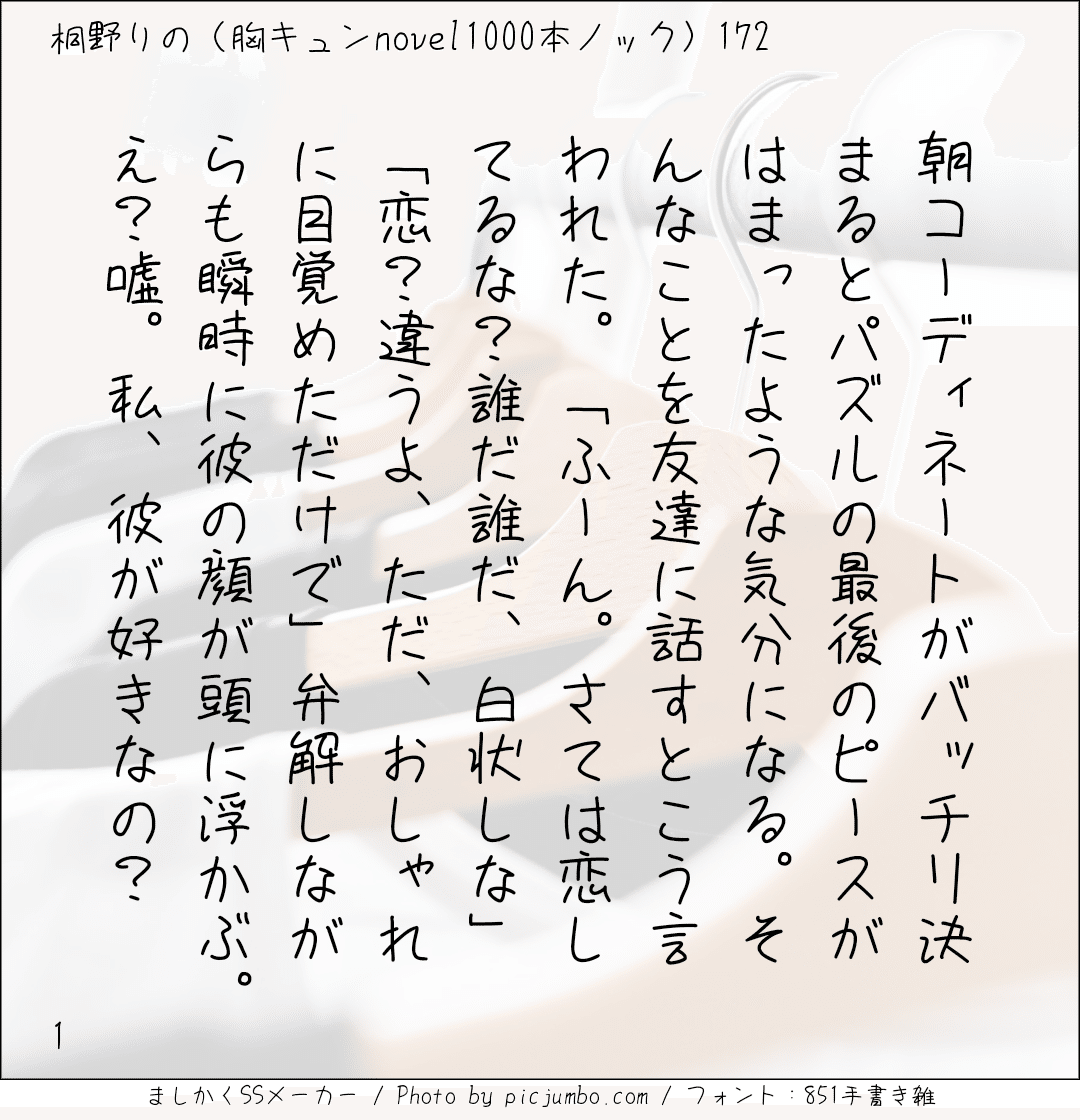 桐野りの（胸キュンnovel1000本ノック）172
朝コーディネートがバッチリ決
まるとパズルの最後のピースが
はまったような気分になる。そ
んなことを友達に話すとこう言
われた。「ふーん。さては恋し
てるな？誰だ誰だ、白状しな」
「恋？違うよ、ただ、おしゃれ
に目覚めただけで」弁解しなが
らも瞬時に彼の顔が頭に浮かぶ。
え？嘘。私、彼が好きなの？
1
ましかくSSメーカー / Photo by picjumbo.com / フォント：851手書き雑